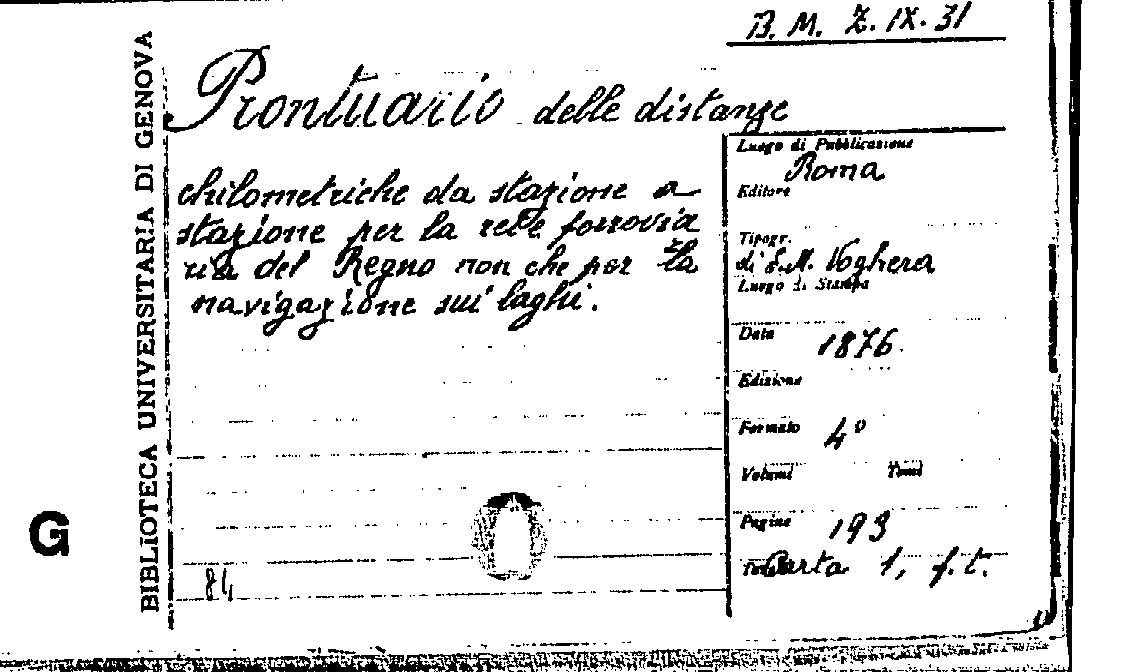 B. M. Z. IX. 31
BIBLIOTECA UNIVERSITARIA DI GENOVA
Prontuario delle distanze
chilometriche da stazione a
stazione per la rete ferrovia
ria del Regno non che per la
navigazione sui laghi.
Luogo di Pubblicazione
Roma
Editore
Tipogr.
di E. M. Voghera
Luogo di Stampa
Data 1876.
Edizione
Formato 4°
Volumi Tomi
Pagine 193
Carta 1, f. t.
G
84